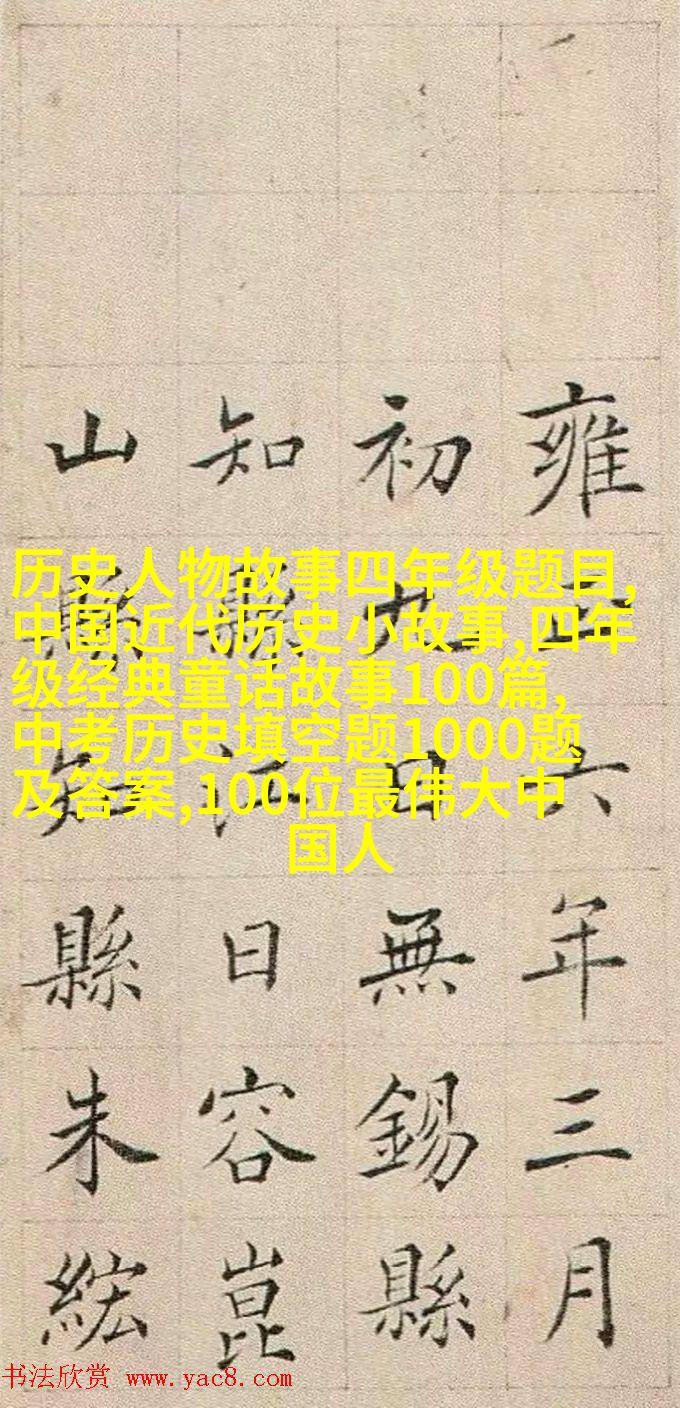 雍正六年三月
初九日無錫縣
知縣江日容崑
山縣知縣朱紘
历史人物故事四年级题目,
中国近代历史小故事,四年
级经典童话故事100篇,
中考历史填空题1000题
及答案,100位最伟大中
国人
书法欣赏 www.yac8.com